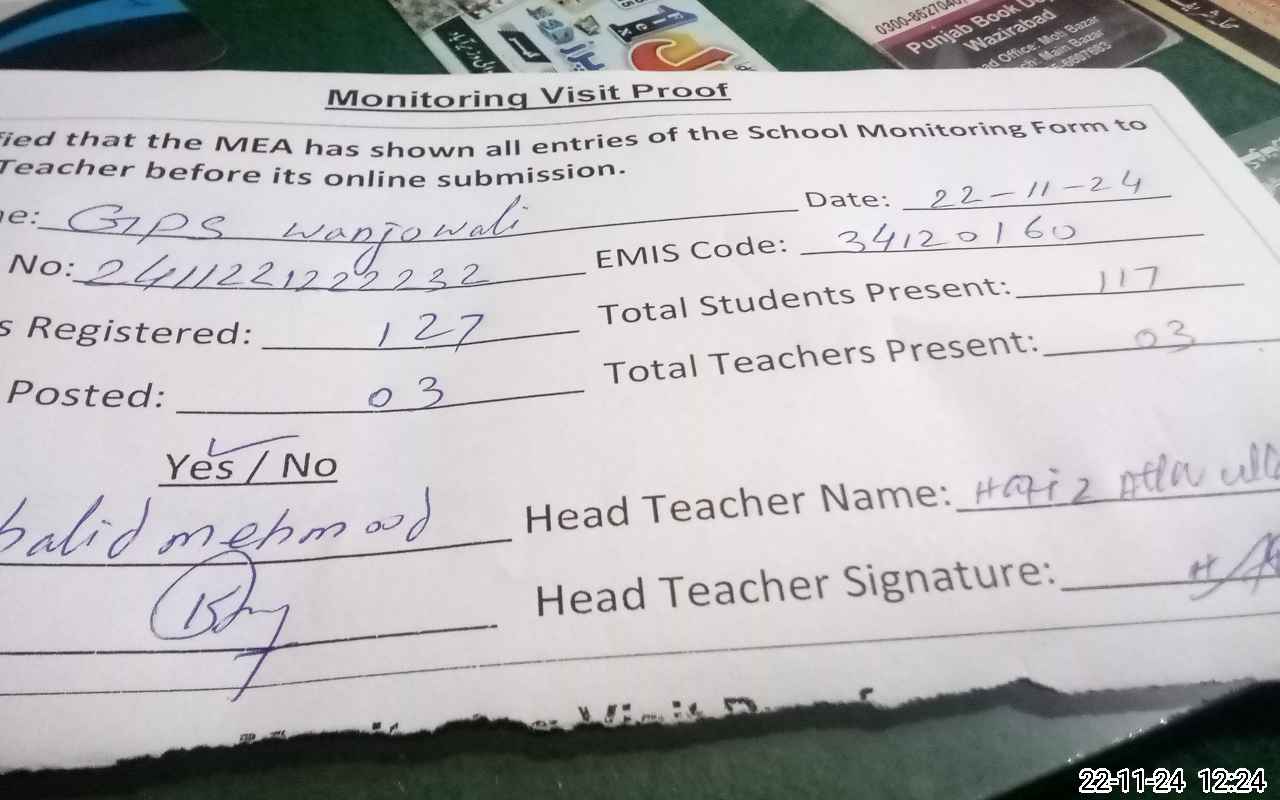 0300-8627040
Punjab Book De
Wazirabad
ad Office: Moti Bazar
ch: Main Bazar
Monitoring Visit Proof
fied that the MEA has shown all entries of the School Monitoring Form to
Teacher before its online submission.
e: GPS wanjowali Date: 22-11-24
No: 2411221222232 EMIS Code: 34120160
s Registered: 127 Total Students Present: 117
Posted: 03 Total Teachers Present: 03
Yes / No
halid mehmood Head Teacher Name: Hafiz Atta ulla
Head Teacher Signature:
22-11-24 12:24